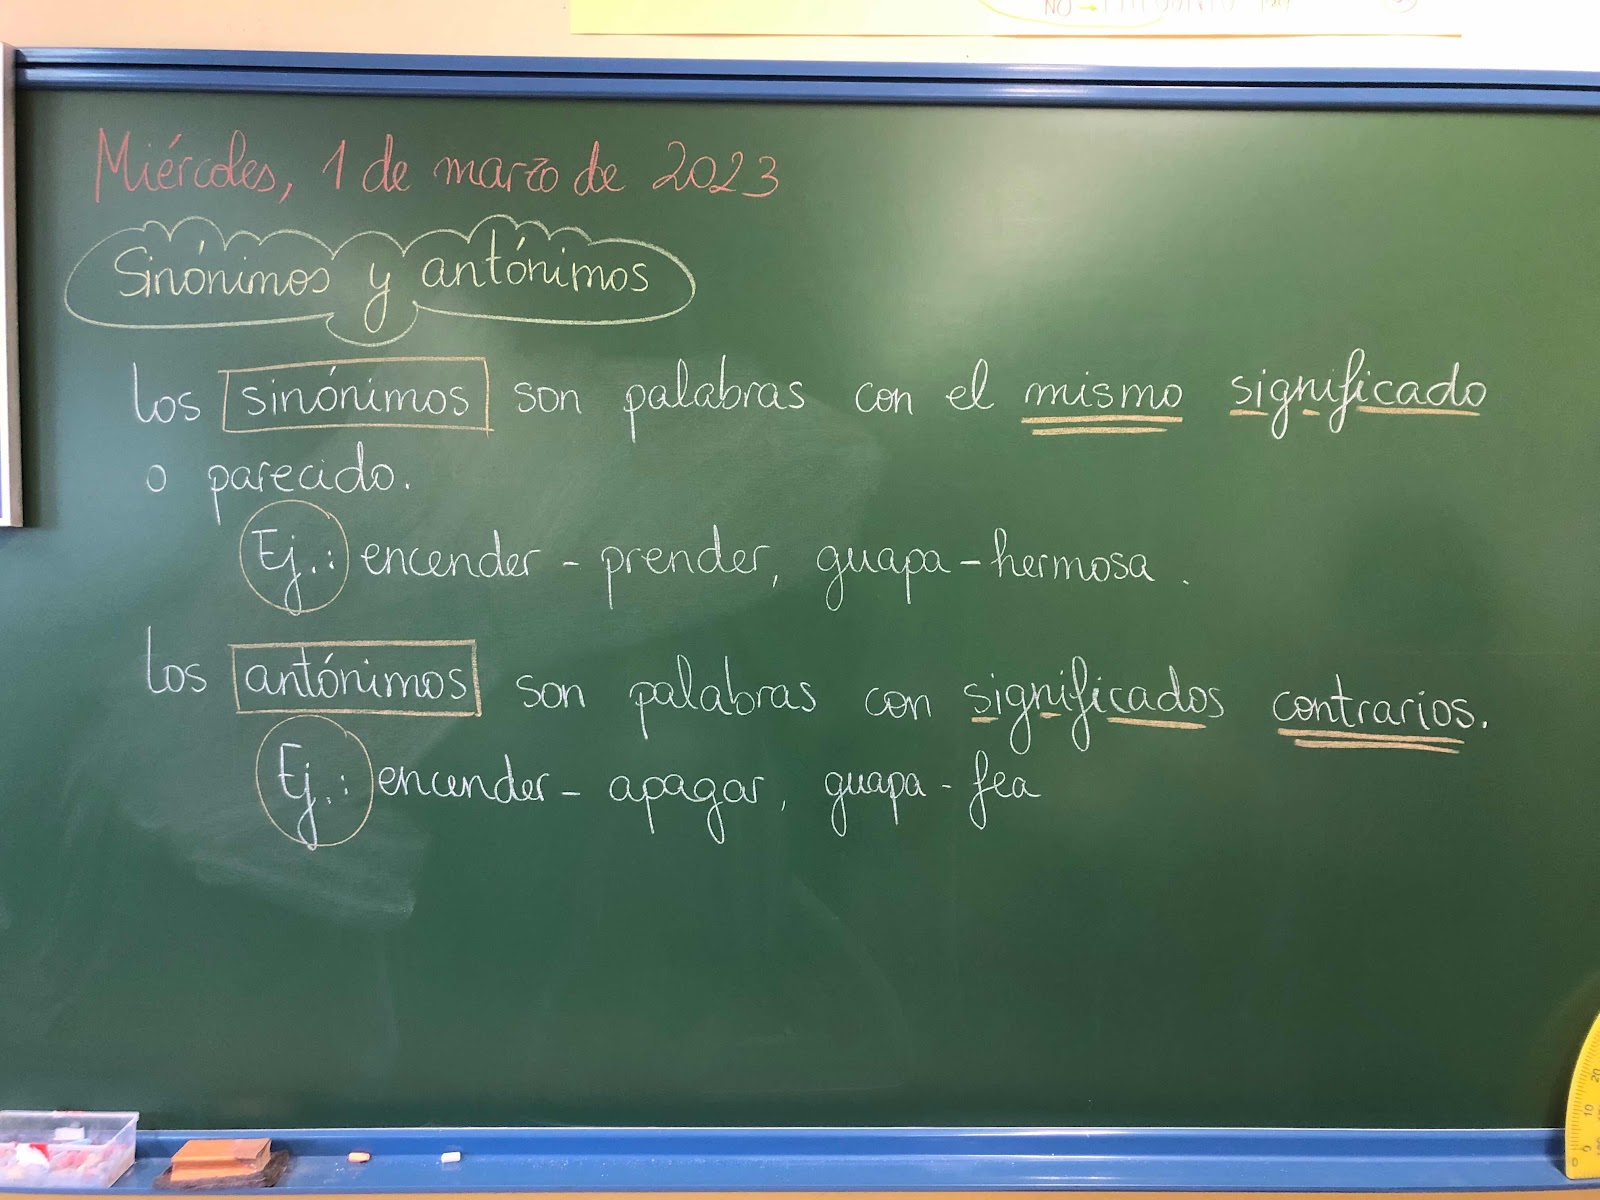 NO →
Miércoles, 1 de marzo de 2023
Sinónimos y antónimos
Los sinónimos son palabras con el mismo significado
o parecido.
Ej.: encender - prender, guapa - hermosa.
Los antónimos son palabras con significados contrarios.
Ej.: encender - apagar, guapa - fea
20
10
0
0